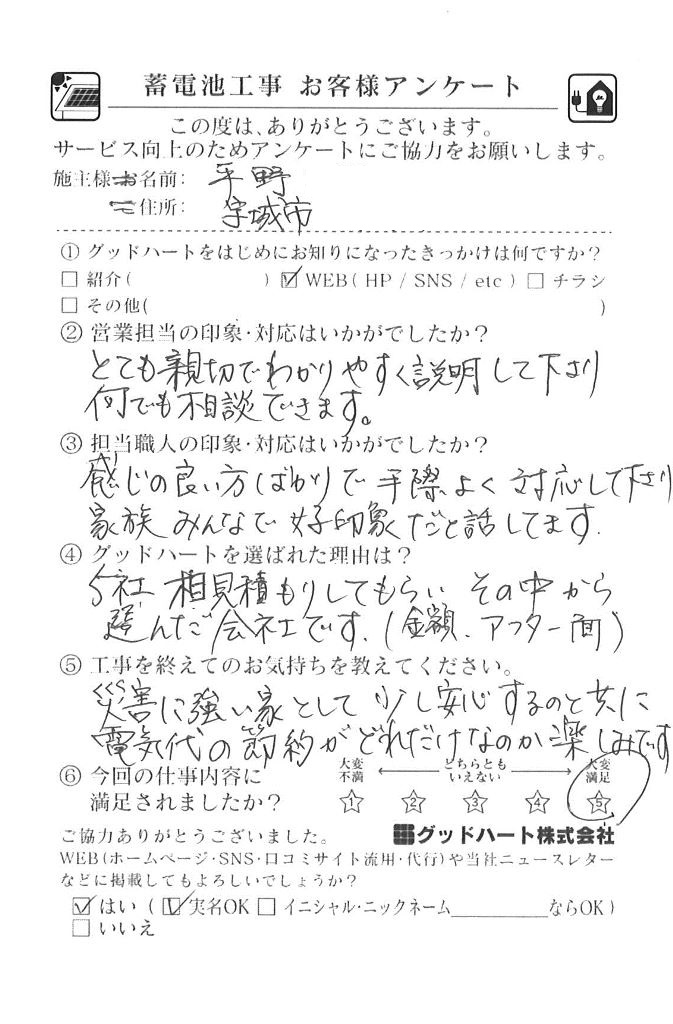 蓄電池工事 お客様アンケート
この度は、ありがとうございます。
サービス向上のためアンケートにご協力をお願いします。
施主様お名前: 平野
ご住所: 宇城市
① グッドハートをはじめにお知りになったきっかけは何ですか？
□ 紹介( ) ☑ WEB( HP / SNS / etc ) □ チラシ
□ その他( )
② 営業担当の印象・対応はいかがでしたか？
とても親切でわかりやすく説明して下さり
何でも相談できます。
③ 担当職人の印象・対応はいかがでしたか？
感じの良い方ばかりで手際よく対応して下さり
家族みんなで好印象だと話してます.
④ グッドハートを選ばれた理由は？
5社相見積もりしてもらい その中から
選んだ会社です.(金額、アフター面)
⑤ 工事を終えてのお気持ちを教えてください。
災害に強い家として少し安心するのと共に
電気代の節約がどれだけなのか楽しみです
⑥ 今回の仕事内容に
満足されましたか？
大変不満 どちらともいえない 大変満足
1 2 3 4 5
ご協力ありがとうございました。 グッドハート株式会社
WEB(ホームページ・SNS・口コミサイト流用・代行)や当社ニュースレター
などに掲載してもよろしいでしょうか？
☑ はい ( ☑ 実名OK □ イニシャル・ニックネーム________ならOK )
□ いいえ